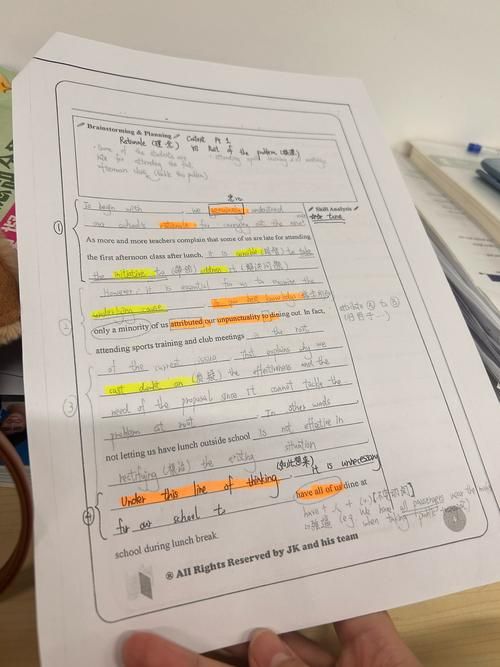 Brainstorming & Planning Content Pt 1
Rationale (理念) vs Root of the problem (根源)
Some of the students are
late for attending the first
afternoon class (tackle the problem)
To begin with we understand
our school's rationale for carrying out the
Skill Analysis
tone
① As more and more teachers complain that some of us are late for attending
the first afternoon class after lunch, it is sensible to take
the initiative to address it (解決問題)
However, it is essential for us to examine the
underlying cause As far best knowledge
② only a minority of us attributed our unpunctuality to dining out. In fact,
attribute Ⓐ to Ⓑ
attending sports training and club meetings is the root
of the current that explains why we
cast doubt on the effectiveness and the
③ need of the proposal since it cannot tackle the
problem at root In other words
not letting us have lunch outside school is not effective in
rectifying the existing situation
Under this line of thinking (如此想來) it is unnecessary
④ for our school to have all of us dine at
have + 人 +
(e.g. We have all passengers wear the
when taking public
school during lunch break.
® All Rights Reserved by JK and his team